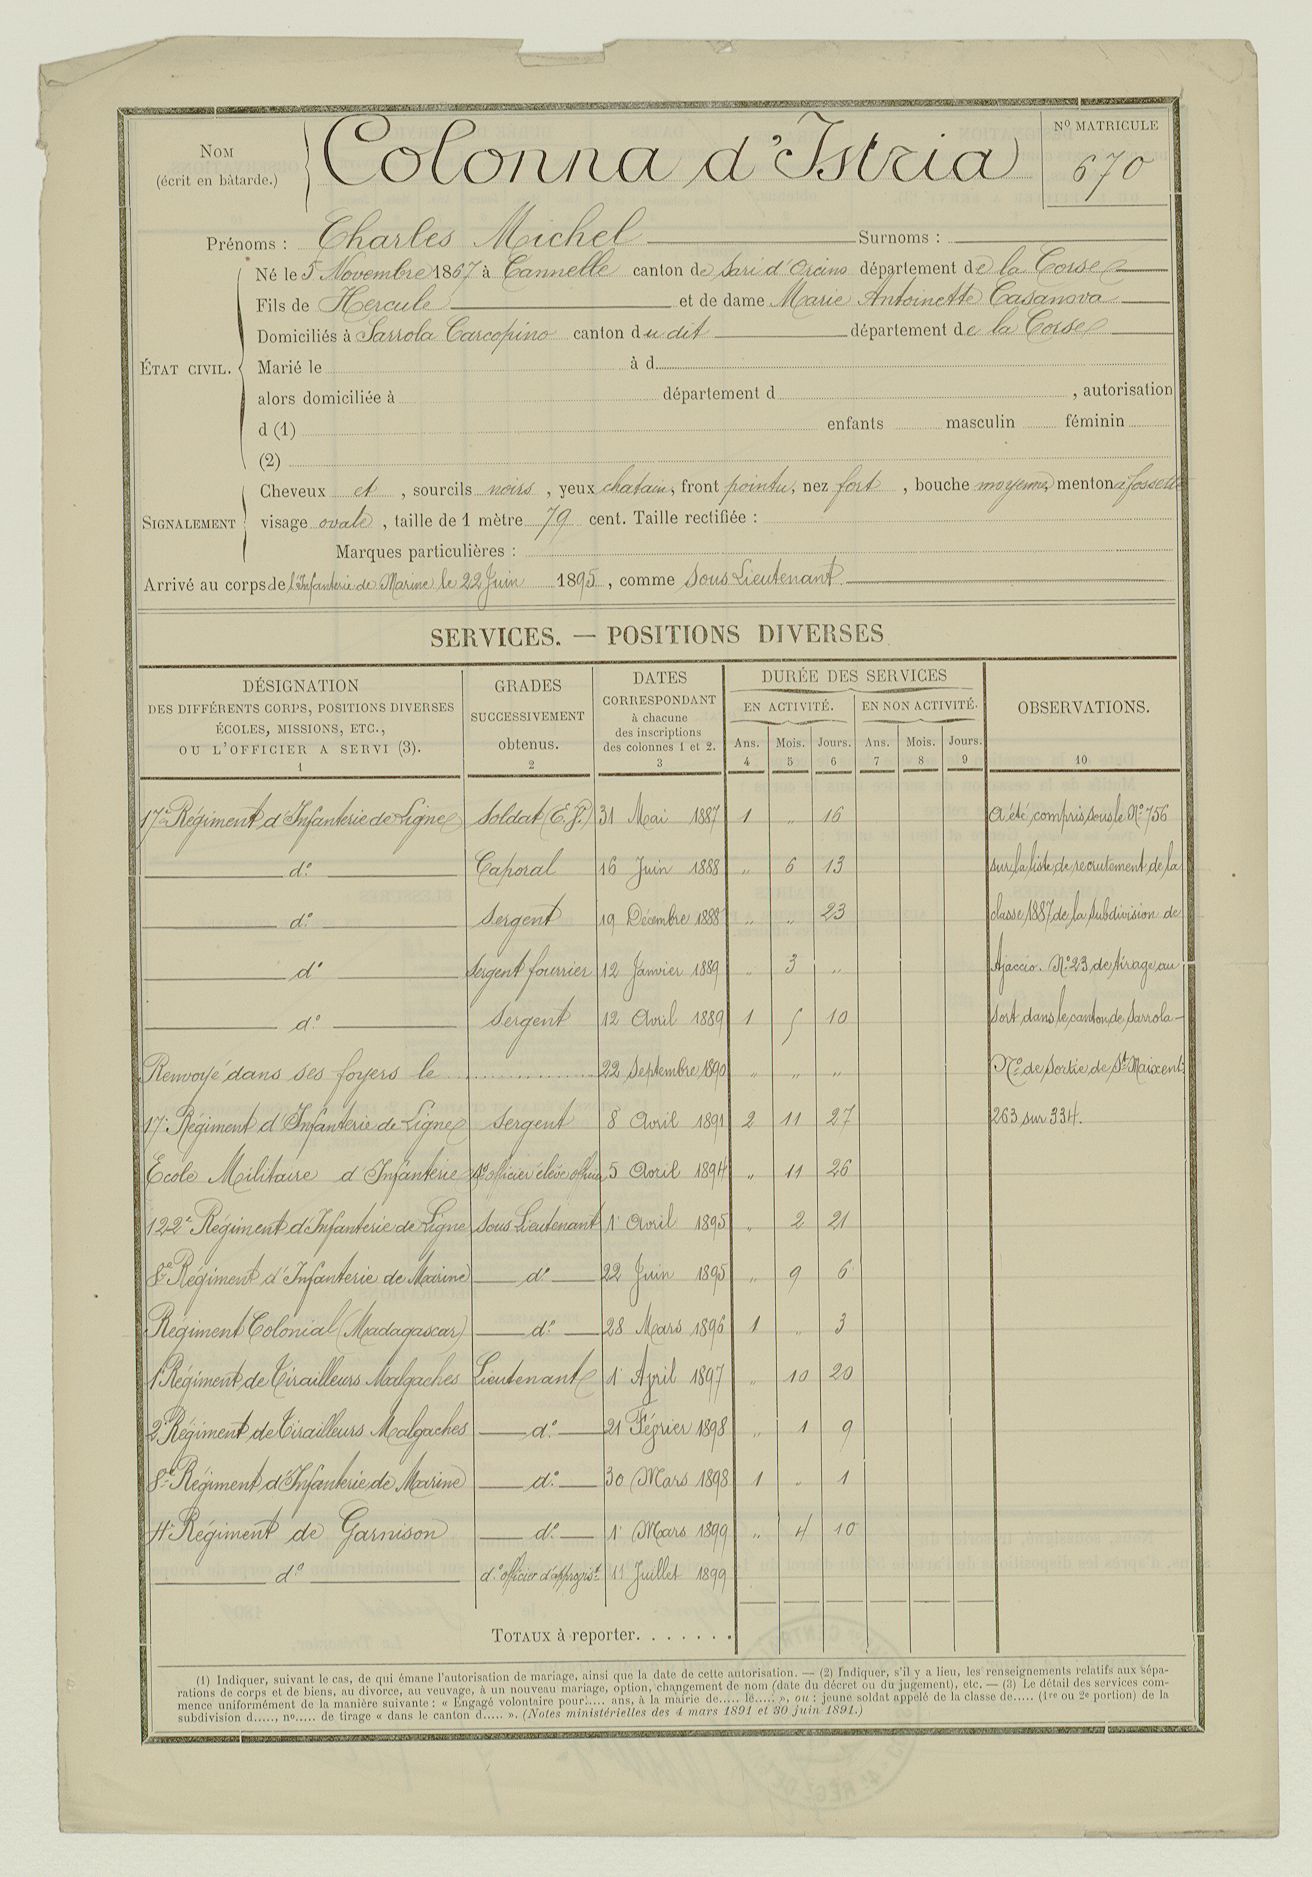 NOM
(écrit en bâtarde.)
Colonna d'Istria
No MATRICULE
670
Prénoms : Charles Michel Surnoms :
ÉTAT CIVIL.
Né le 5 Novembre 1867 à Cannelle canton de Sari d'Orcino département de la Corse
Fils de Hercule et de dame Marie Antoinette Casanova
Domiciliés à Sarrola Carcopino canton du dit département de la Corse
Marié le à d
alors domiciliée à département d , autorisation
d (1) enfants masculin féminin
(2)
SIGNALEMENT
Cheveux et , sourcils noirs , yeux chatain, front pointu, nez fort , bouche moyenne, menton à fossette
visage ovale , taille de 1 mètre 79 cent. Taille rectifiée :
Marques particulières :
Arrivé au corps de l'Infanterie de Marine le 22 Juin 1895 , comme Sous Lieutenant
SERVICES. — POSITIONS DIVERSES
DÉSIGNATION
DES DIFFÉRENTS CORPS, POSITIONS DIVERSES
ÉCOLES, MISSIONS, ETC.,
OU L'OFFICIER A SERVI (3).
1
GRADES
SUCCESSIVEMENT
obtenus.
2
DATES
CORRESPONDANT
à chacune
des inscriptions
des colonnes 1 et 2.
3
DURÉE DES SERVICES
EN ACTIVITÉ. EN NON ACTIVITÉ.
Ans. Mois. Jours. Ans. Mois. Jours.
4 5 6 7 8 9
OBSERVATIONS.
10
17e Régiment d'Infanterie de Ligne Soldat (E.V.) 31 Mai 1887 1 " 16 A été compris sous le No 756
do Caporal 16 Juin 1888 " 6 13 sur la liste de recrutement de la
do Sergent 19 Décembre 1888 " " 23 classe 1887 de la subdivision de
do Sergent fourrier 12 Janvier 1889 " 3 " Ajaccio. No 23 de tirage au
do Sergent 12 Avril 1889 1 5 10 sort dans le canton de Sarrola –
Renvoyé dans ses foyers le 22 Septembre 1890 " " " No de sortie de St Maixent:
17e Régiment d'Infanterie de Ligne Sergent 8 Avril 1891 2 11 27 263 sur 334.
Ecole Militaire d'Infanterie So officier élève officier 5 Avril 1894 " 11 26
122e Régiment d'Infanterie de Ligne Sous Lieutenant 1er Avril 1895 " 2 21
8e Régiment d'Infanterie de Marine do 22 Juin 1895 " 9 6
Régiment Colonial (Madagascar) do 28 Mars 1896 1 " 3
1er Régiment de Tirailleurs Malgaches Lieutenant 1er April 1897 " 10 20
2e Régiment de Tirailleurs Malgaches do 21 Février 1898 " 1 9
8e Régiment d'Infanterie de Marine do 30 Mars 1898 1 " 1
4e Régiment de Garnison do 1er Mars 1899 " 4 10
do do officier d'approvist 11 Juillet 1899
TOTAUX à reporter. . . . . . .
(1) Indiquer, suivant le cas, de qui émane l'autorisation de mariage, ainsi que la date de cette autorisation. — (2) Indiquer, s'il y a lieu, les renseignements relatifs aux sépa-
rations de corps et de biens, au divorce, au veuvage, à un nouveau mariage, option, changement de nom (date du décret ou du jugement), etc. — (3) Le détail des services com-
mence uniformément de la manière suivante : « Engagé volontaire pour..... ans, à la mairie de..... le..... », ou : jeune soldat appelé de la classe de..... (1re ou 2e portion) de la
subdivision d....., no..... de tirage « dans le canton d..... ». (Notes ministérielles des 4 mars 1891 et 30 juin 1891.)